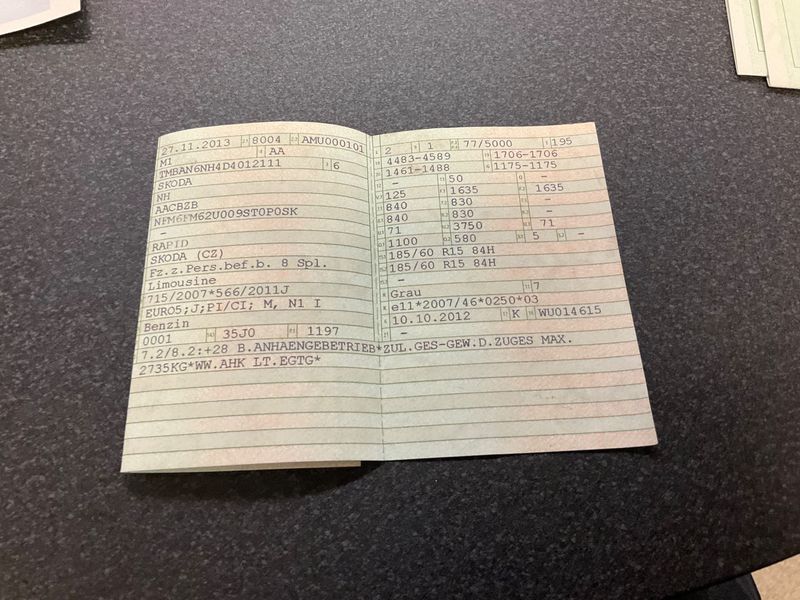 27.11.2013 8004 AMU000101
M1 AA
TMBAN6NH4D4012111 6
SKODA
NH
AACBZB
NFM6FM62U009ST0P0SK
-
RAPID
SKODA (CZ)
Fz.z.Pers.bef.b. 8 Spl.
Limousine
715/2007*566/2011J
EURO5;J;PI/CI; M, N1 I
Benzin
0001 35J0 1197
7.2/8.2:+28 B.ANHAENGEBETRIEB*ZUL.GES-GEW.D.ZUGES MAX.
2735KG*WW.AHK LT.EGTG*
2 1 77/5000 195
4483-4589 1706-1706
1461-1488 1175-1175
- 50 -
125 1635 1635
840 830 -
840 830 -
71 3750 71
1100 580 5 -
185/60 R15 84H
185/60 R15 84H
-
Grau 7
e11*2007/46*0250*03
10.10.2012 K WU014615
-